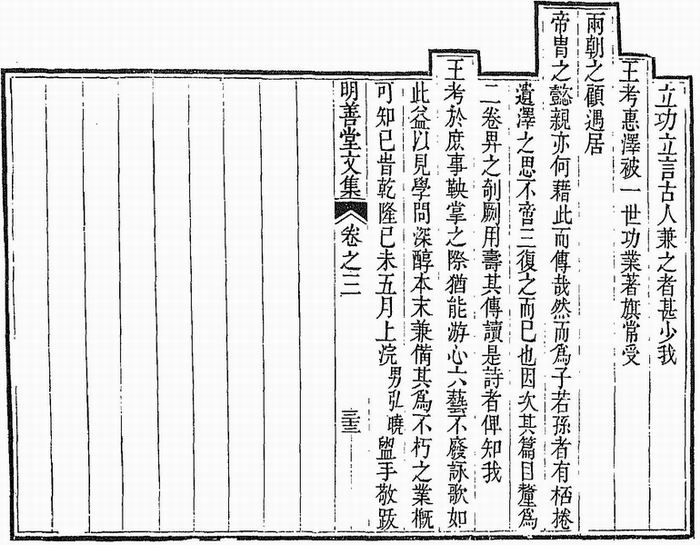 立功立言古人兼之者甚少我
王考惠澤被一世功業著旂常受
兩朝之顧遇居
帝胄之懿親亦何藉此而傳哉然而爲子若孫者有栝捲
遺澤之思不啻三復之而已也因次其篇目釐爲
二卷畀之剞劂用壽其傳讀是詩者俾知我
王考於庶事鞅掌之際猶能游心六藝不廢詠歌如
此益以見學問深醇本末兼備其爲不朽之業槪
可知已旹乾隆己未五月上浣男弘曉盥手敬跋
明善堂文集 卷之三 三十三